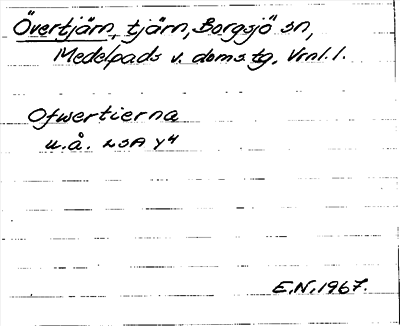 Övertjärn, tjärn, Borgsjö sn,
Medelpads v. doms.tg, Vrnl. l.
Ofwertierna
u.å. LSA Y4
E.N. 1967.